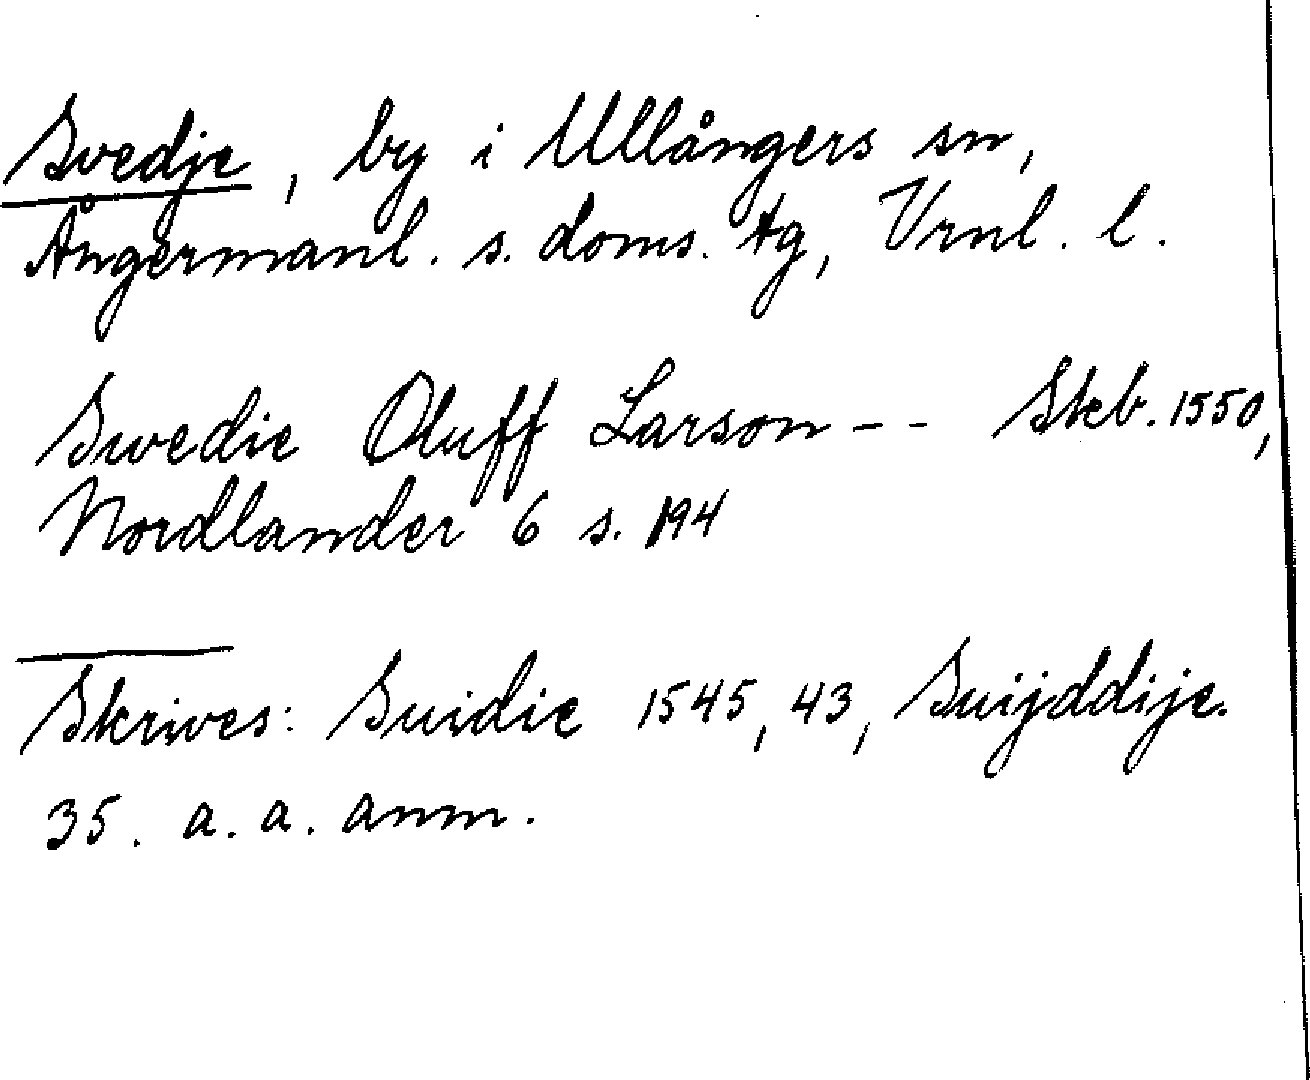 Svedje, by i Ullångers sn,
Ångermanl. s. doms. tg, Vrnl. l.
Swedie Oluff Larson -- Skb. 1550,
Nordlander 6 s. 194
Skrives: Suidie 1545, 43, Suijddije.
35. a. a. anm.